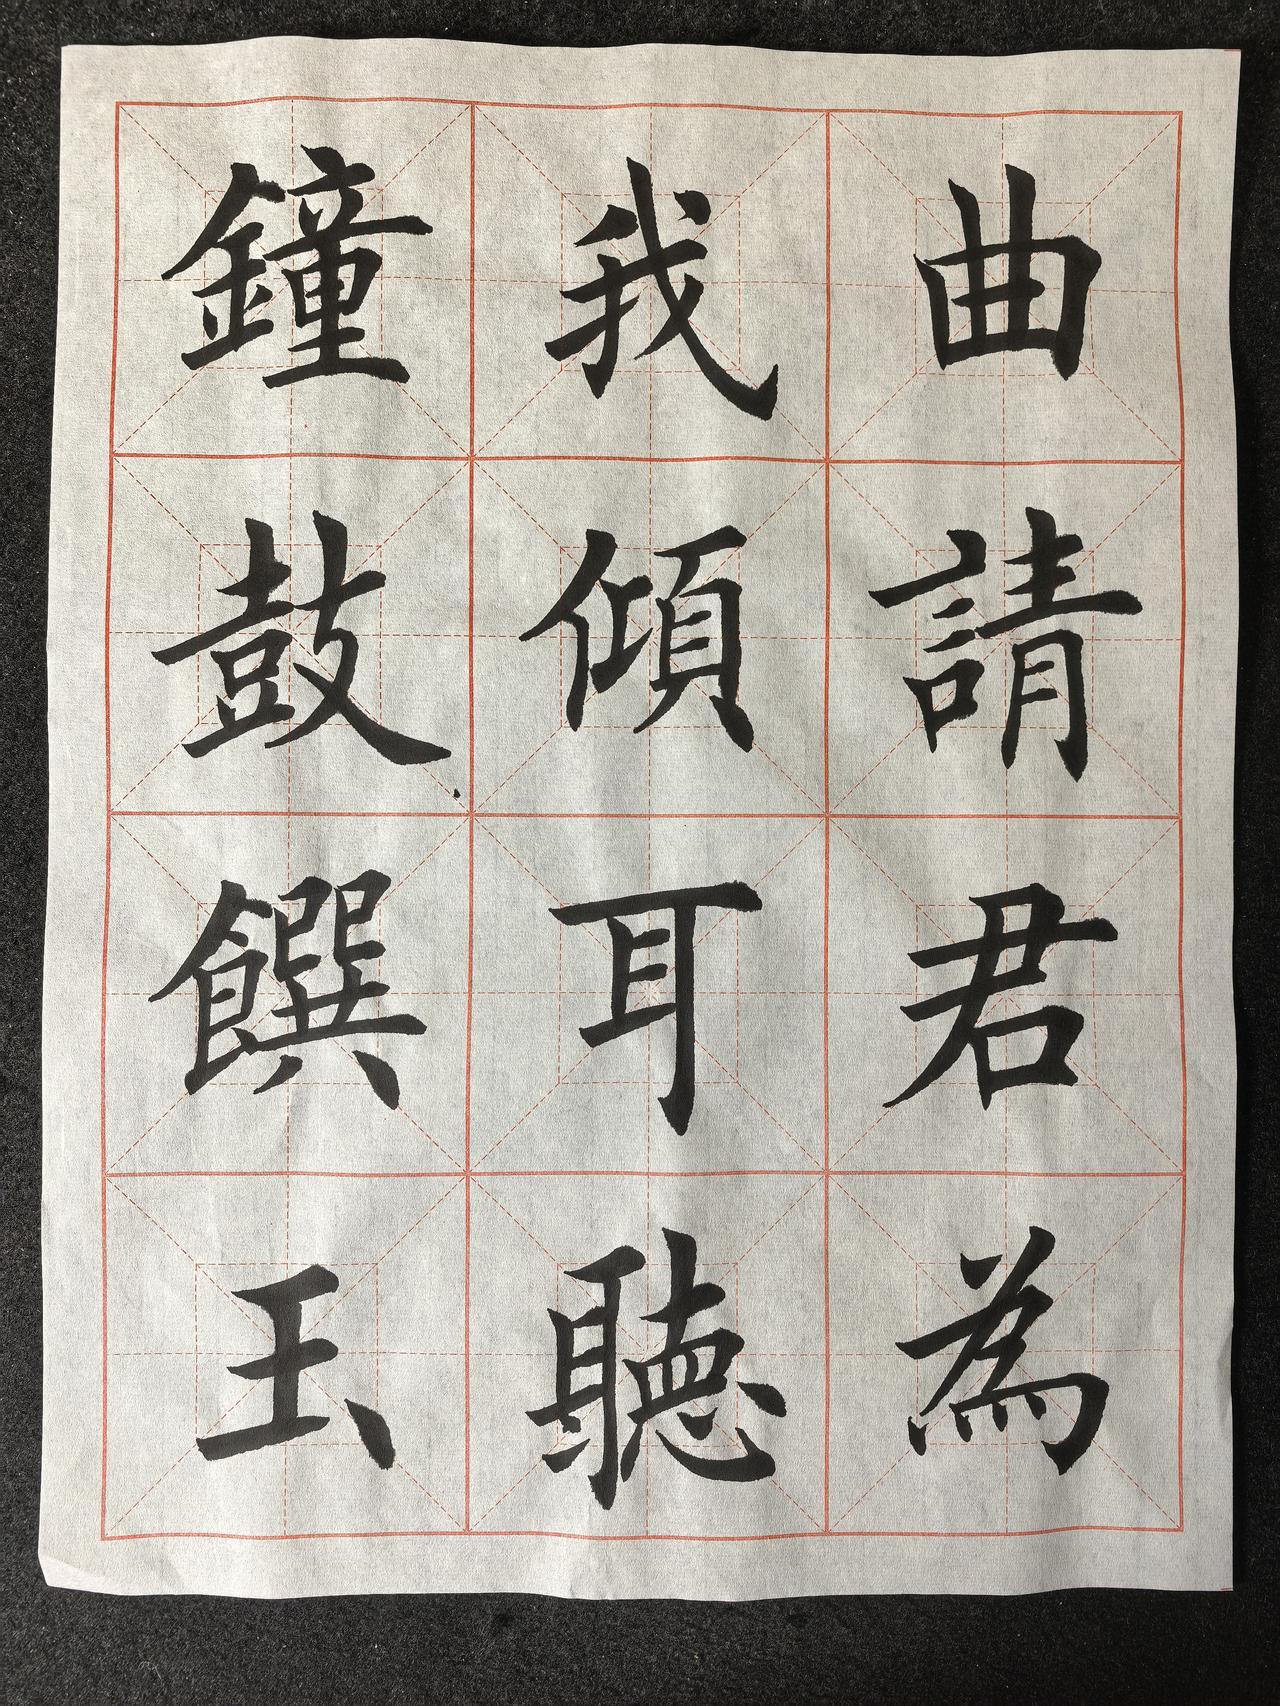 曲請君為
我傾耳聽
鐘鼓饌玉